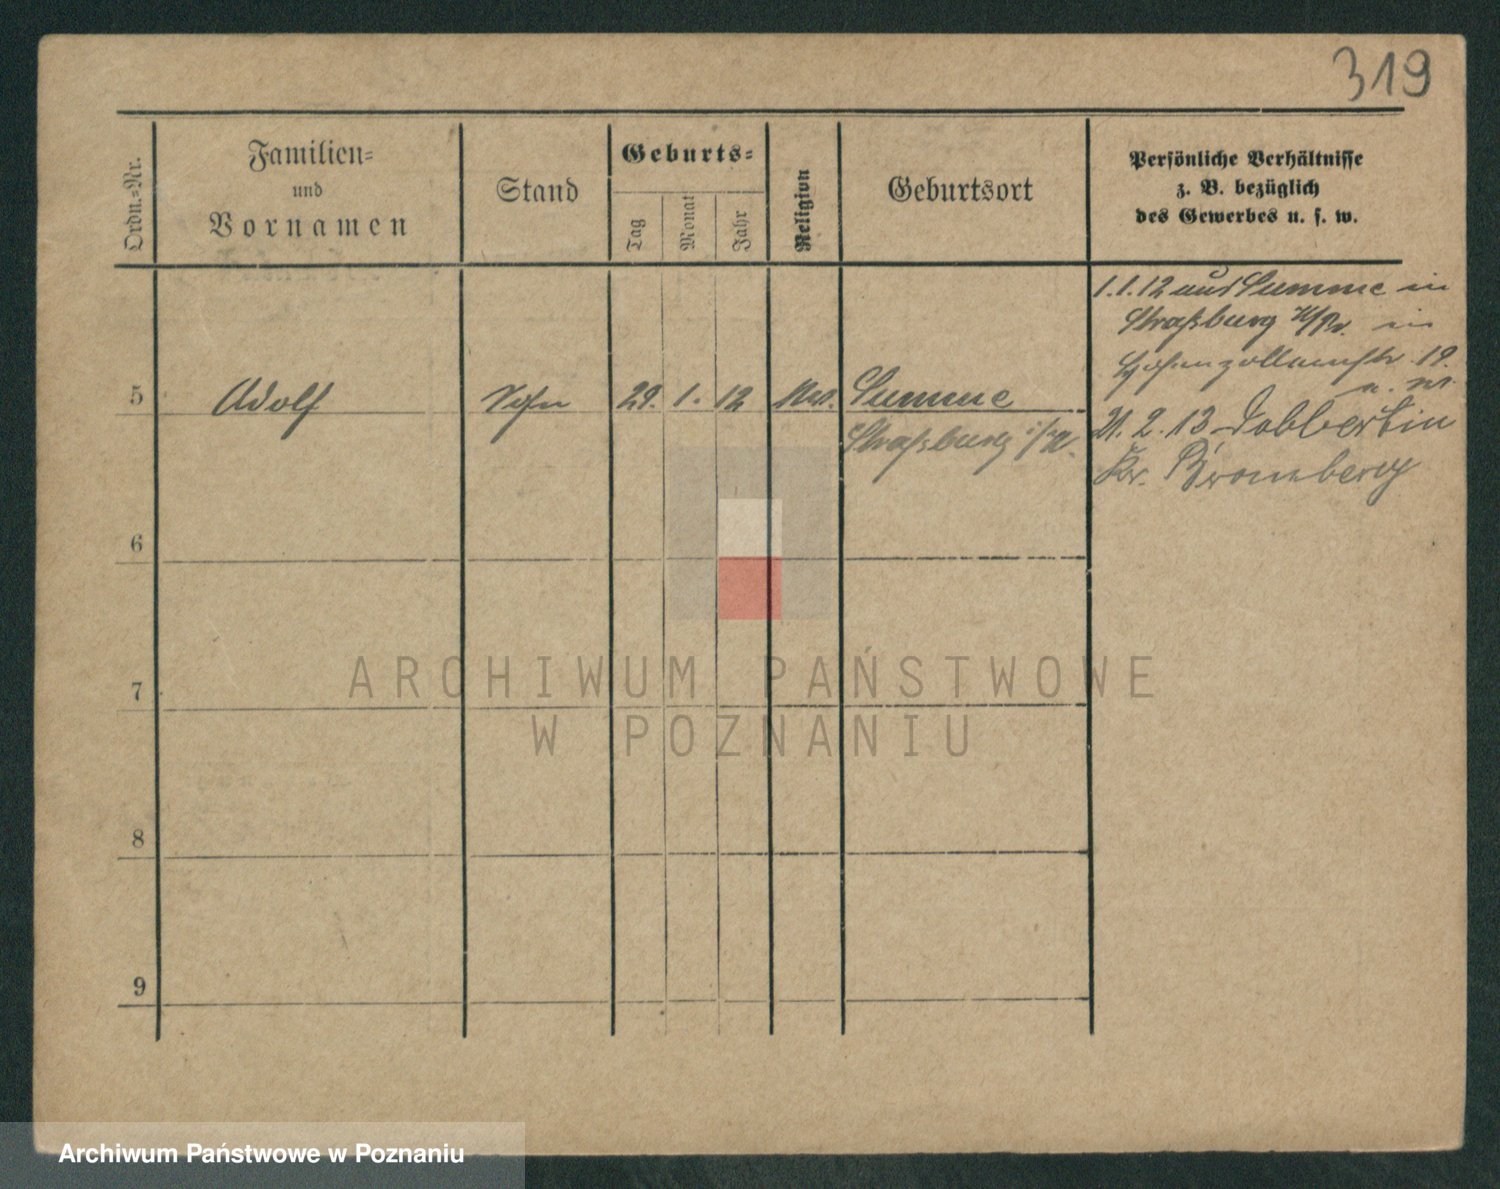 319
Ordn.-Nr.
Familien-
und
Vornamen
Stand
Geburts-
Tag
Monat
Jahr
Religion
Geburtsort
Persönliche Verhältnisse
z. B. bezüglich
des Gewerbes u. s. w.
1.1.12 aus Summe in
Straßburg W/Pr. in
Hohenzollernstr. 19.
5 Adolf Sohn 29. 1. 12 Summe
21. 2. 13 Dobbertin
Straßburg
Kr. Bromberg
6
7
8
9
ARCHIWUM PAŃSTWOWE
W POZNANIU
Archiwum Państwowe w Poznaniu